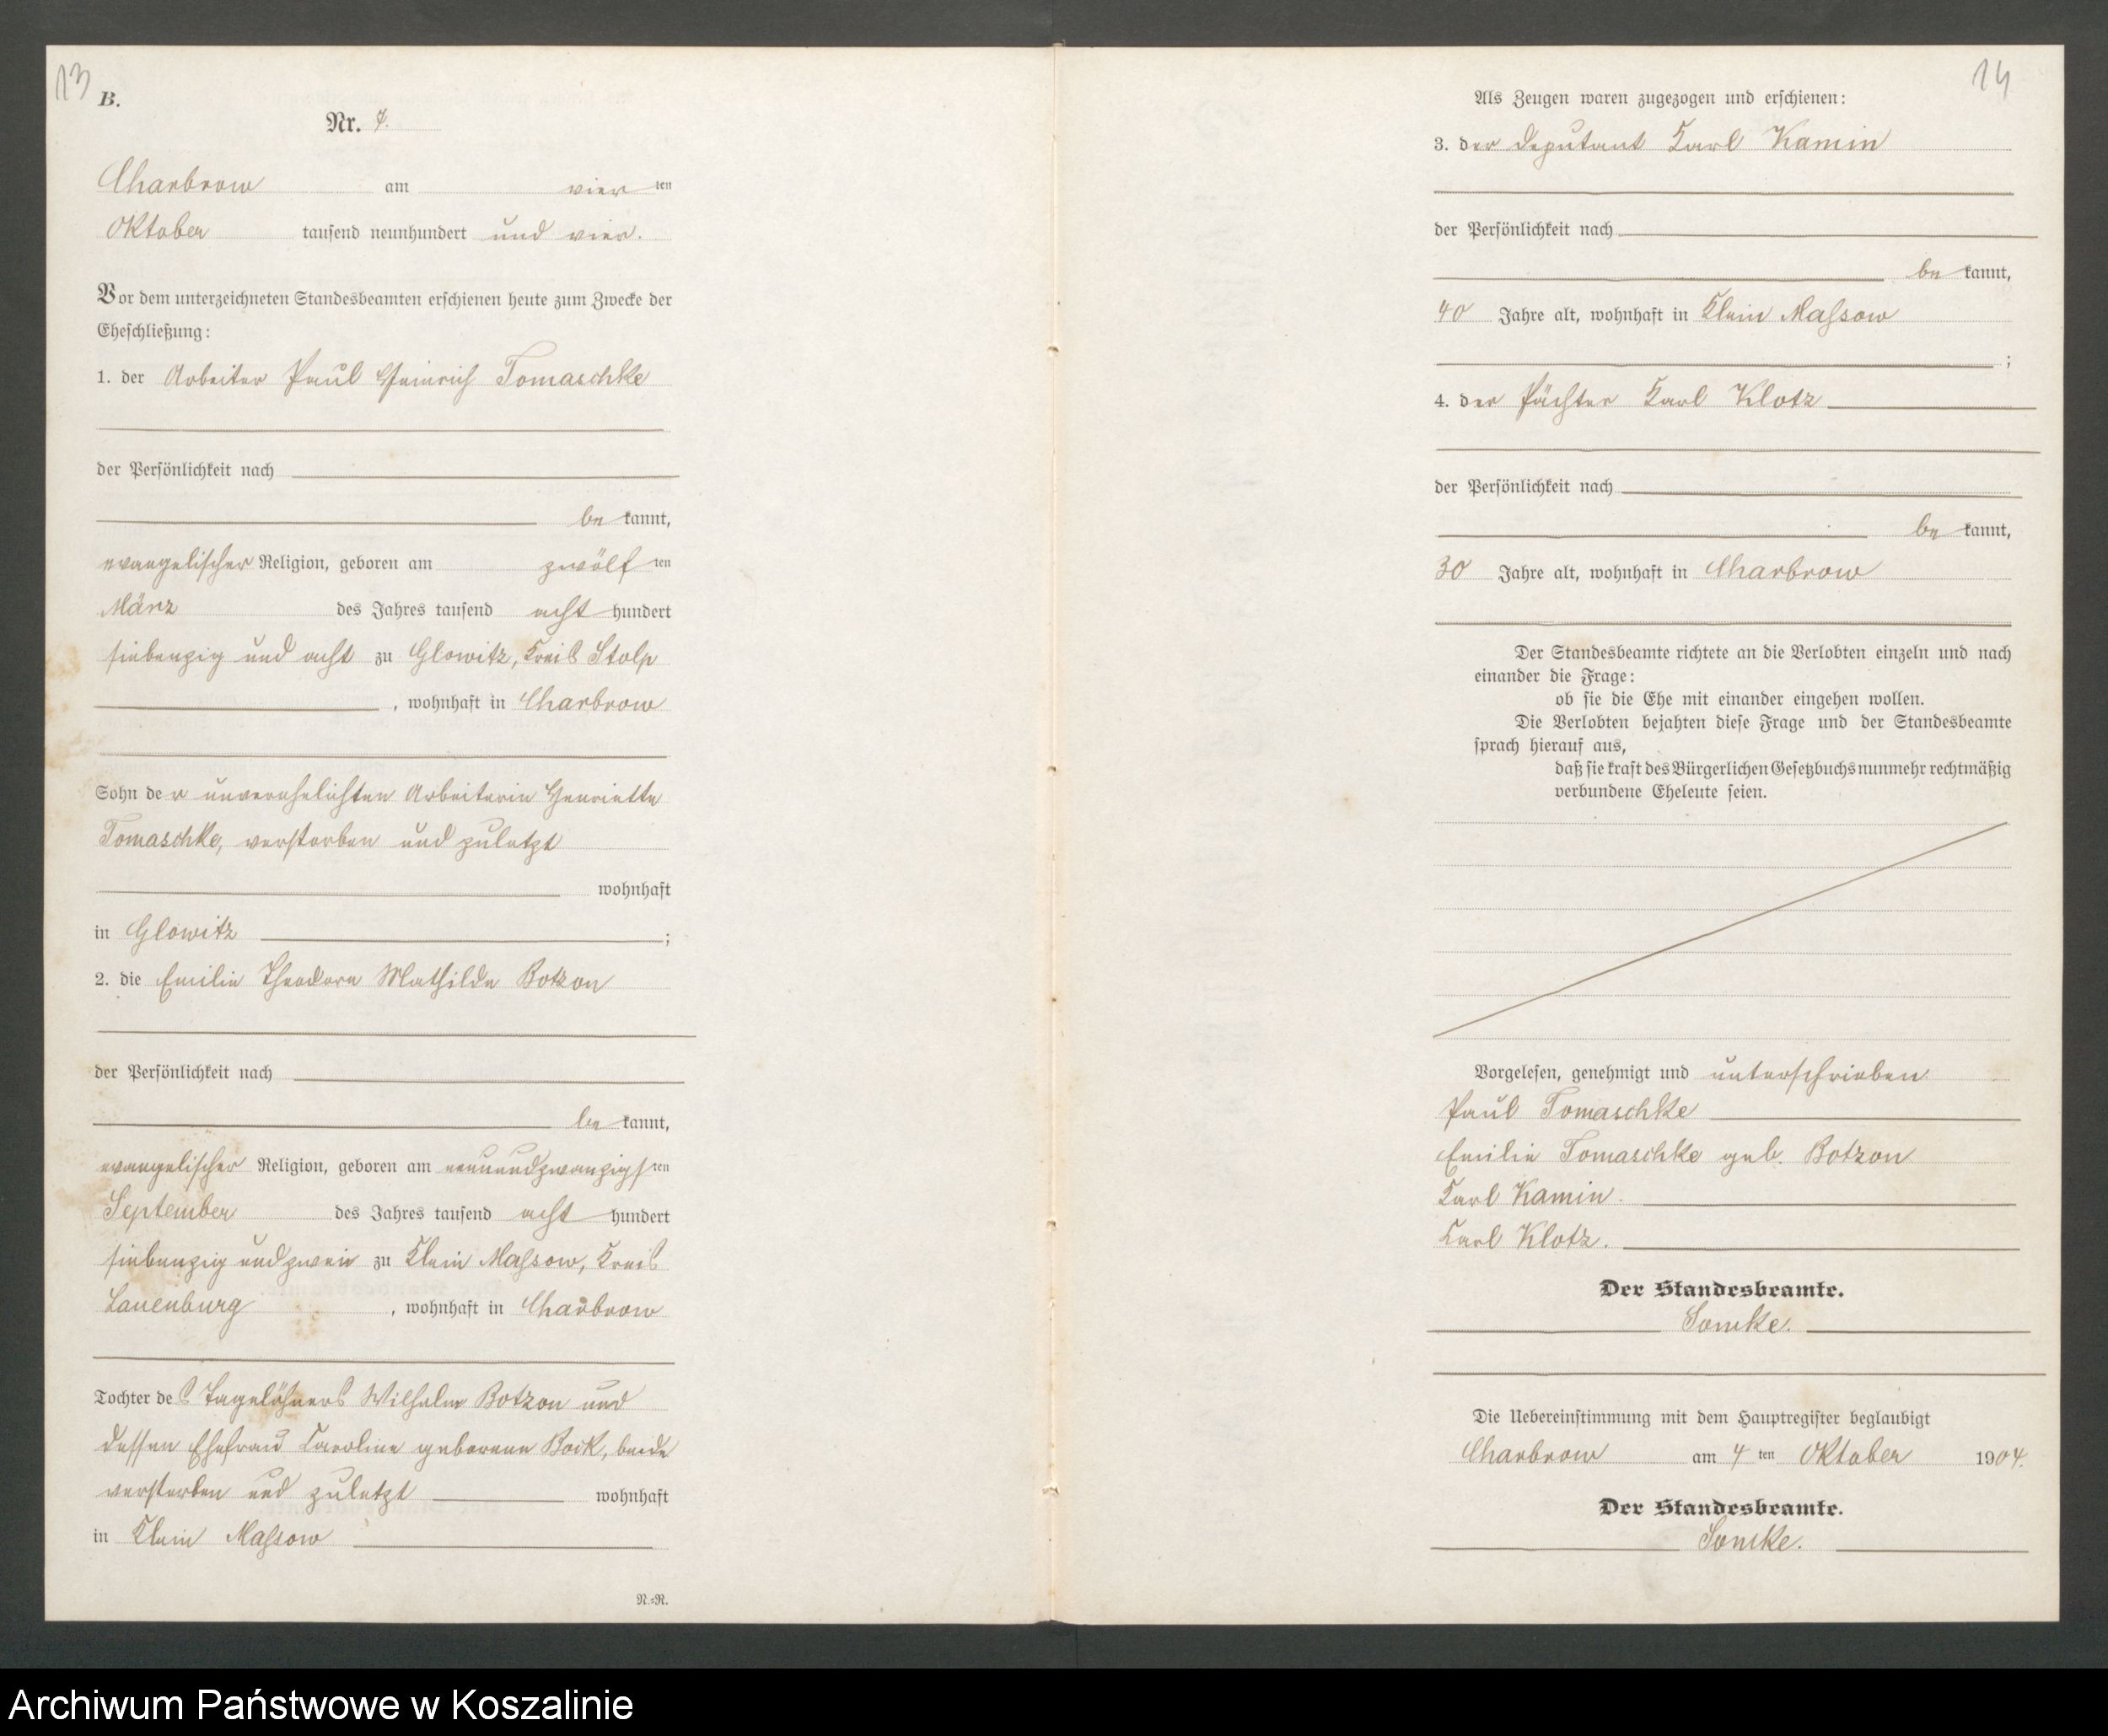 13
B.
Nr. 7.
Charbrow am vier ten
Oktober tausend neunhundert und vier.
Vor dem unterzeichneten Standesbeamten erschienen heute zum Zwecke der
Eheschließung:
1. der Arbeiter Paul Heinrich Tomaschke
der Persönlichkeit nach
be kannt,
evangelischer Religion, geboren am zwölf ten
März des Jahres tausend acht hundert
siebenzig und acht zu Glowitz, Kreis Stolp
, wohnhaft in Charbrow
Sohn der unverehelichten Arbeiterin Henriette
Tomaschke, verstorben und zuletzt
wohnhaft
in Glowitz ;
2. die Emilie Theodore Mathilde Botzon
der Persönlichkeit nach
be kannt,
evangelischer Religion, geboren am neunundzwanzigs ten
September des Jahres tausend acht hundert
siebenzig und zwei zu Klein Massow, Kreis
Lauenburg , wohnhaft in Charbrow
Tochter des Tagelöhners Wilhelm Botzon und
dessen Ehefrau Caroline geborene Bock, beide
verstorben und zuletzt wohnhaft
in Klein Massow
N.=R.
14
Als Zeugen waren zugezogen und erschienen:
3. der Deputant Karl Kamin
der Persönlichkeit nach
be kannt,
40 Jahre alt, wohnhaft in Klein Massow
;
4. der Pächter Karl Klotz
der Persönlichkeit nach
be kannt,
30 Jahre alt, wohnhaft in Charbrow
Der Standesbeamte richtete an die Verlobten einzeln und nach
einander die Frage:
ob sie die Ehe mit einander eingehen wollen.
Die Verlobten bejahten diese Frage und der Standesbeamte
sprach hierauf aus,
daß sie kraft des Bürgerlichen Gesetzbuchs nunmehr rechtmäßig
verbundene Eheleute seien.
Vorgelesen, genehmigt und unterschrieben
Paul Tomaschke
Emilie Tomaschke geb. Botzon
Karl Kamin.
Karl Klotz.
Der Standesbeamte.
Die Uebereinstimmung mit dem Hauptregister beglaubigt
Charbrow am 4 ten Oktober 1904.
Der Standesbeamte.
Archiwum Państwowe w Koszalinie